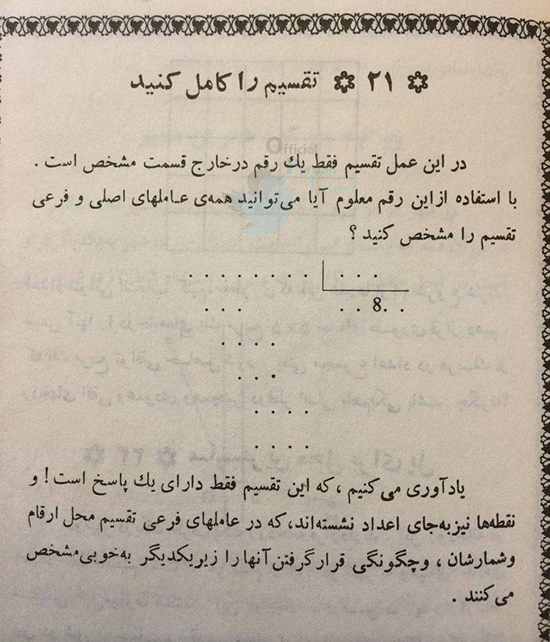 ۲۱ تقسیم را کامل کنید
Official
در این عمل تقسیم فقط یك رقم در خارج قسمت مشخص است .
با استفاده از این رقم معلوم آیا می‌توانید همه‌ی عاملهای اصلی و فرعی
تقسیم را مشخص کنید ؟
. . . . . . . . . .
. . . . . 8 . .
. . . .
. . .
. . . .
. . . .
یادآوری می‌کنیم ، که این تقسیم فقط دارای یك پاسخ است ! و
نقطه‌ها نیز به‌جای اعداد نشسته‌اند، که در عاملهای فرعی تقسیم محل ارقام
و شمارشان ، و چگونگی قرار گرفتن آنها را زیر یکدیگر به‌خوبی مشخص
می‌کنند .